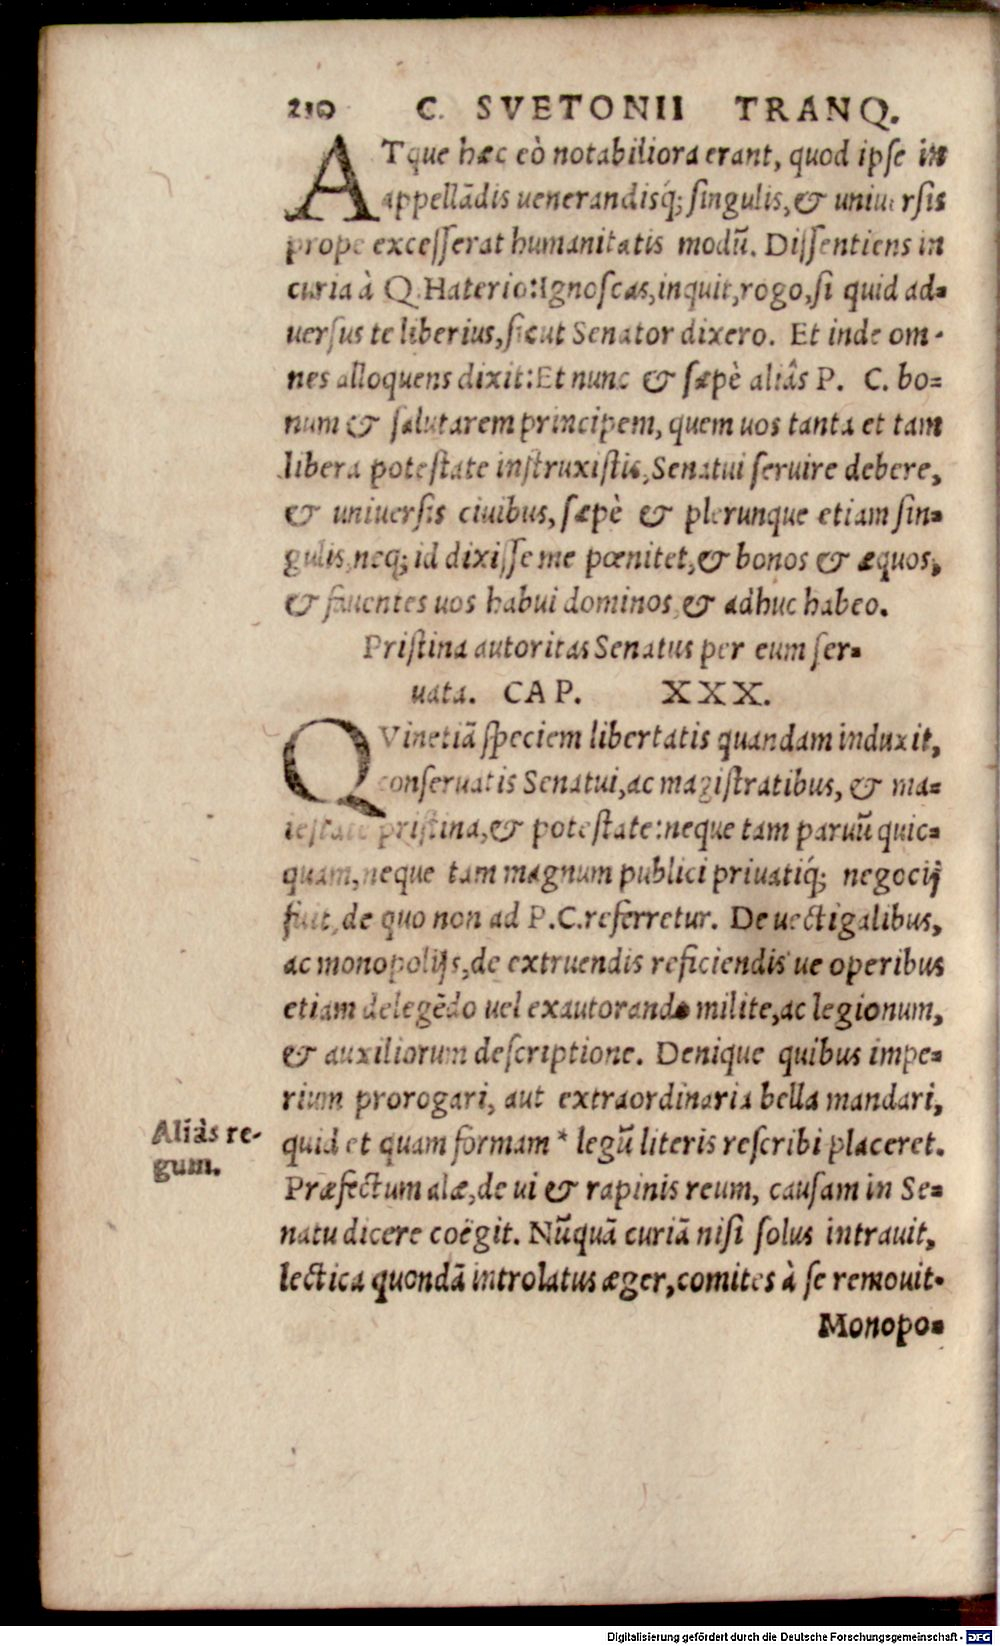 210 C. SVETONII TRANQ.
ATque hæc eò notabiliora erant, quod ipse in
appellãdis uenerandisq́; singulis, & uniuersis
prope excesserat humanitatis modũ. Dissentiens in
curia à Q. Haterio: Ignoscas, inquit, rogo, si quid ad-
uersus te liberius, sicut Senator dixero. Et inde om-
nes alloquens dixit: Et nunc & sæpè aliâs P. C. bo-
num & salutarem principem, quem uos tanta et tam
libera potestate instruxistis, Senatui seruire debere,
& uniuersis ciuibus, sæpè & plerunque etiam sin-
gulis, neq; id dixisse me pœnitet, & bonos & æquos,
& fauentes uos habui dominos, & adhuc habeo.
Pristina autoritas Senatus per eum ser-
uata. CAP. XXX.
QVinetiã speciem libertatis quandam induxit,
conseruatis Senatui, ac magistratibus, & ma-
iestate pristina, & potestate: neque tam paruũ quic-
quam, neque tam magnum publici priuatiq́; negocij
fuit, de quo non ad P.C. referretur. De uectigalibus,
ac monopolijs, de extruendis reficiendis ue operibus
etiam delegẽdo uel exautorando milite, ac legionum,
& auxiliorum descriptione. Denique quibus impe-
rium prorogari, aut extraordinaria bella mandari,
quid et quam formam * legũ literis rescribi placeret.
Aliâs re-
gum.
Præfectum alæ, de ui & rapinis reum, causam in Se-
natu dicere coëgit. Nũquã curiã nisi solus intrauit,
lectica quondã introlatus æger, comites à se remouit.
Monopo-
Digitalisierung gefördert durch die Deutsche Forschungsgemeinschaft - DFG